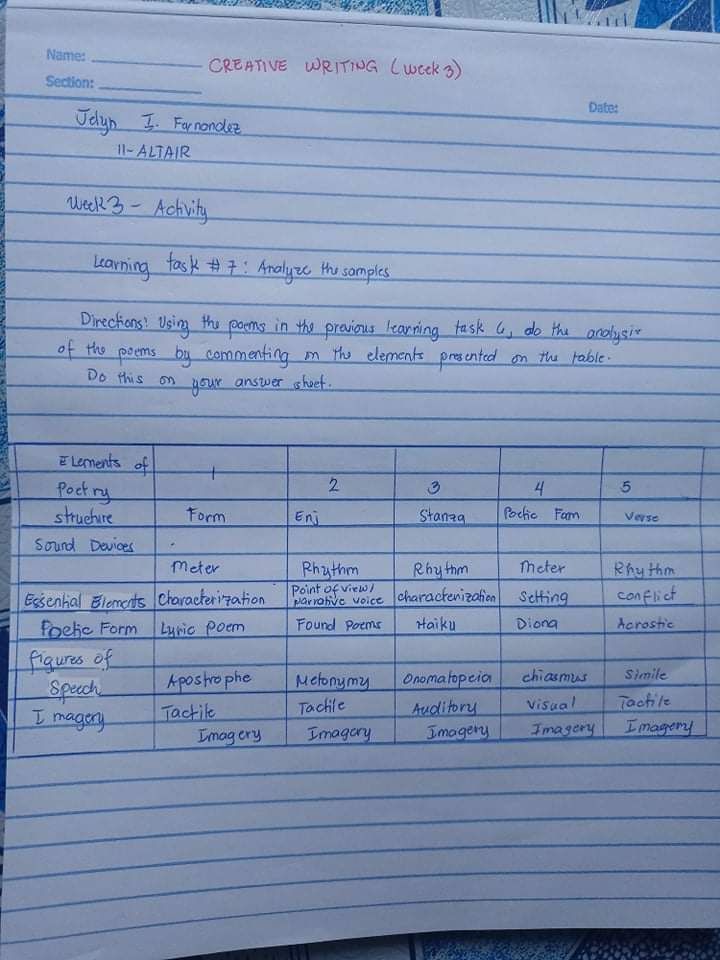 Name: CREATIVE WRITING (Week 3)
Section:
Date:
Jelyn I. Farnandez
11-ALTAIR
Week 3 - Activity
Learning task # 7: Analyze the samples
Directions: Using the poems in the previous learning task 6, do the analysis
of the poems by commenting on the elements presented on the table.
Do this on your answer sheet.
Elements of
Poetry 1 2 3 4 5
structure Form Enj Stanza Poetic Fam Verse
Sound Devices
Meter Rhythm Rhythm Meter Rhythm
Essential Elements Characterization Point of view/ narrative voice characterization Setting conflict
Poetic Form Lyric Poem Found Poems Haiku Diona Acrostic
figures of
Speech Apostrophe Metonymy Onomatopeia chiasmus Simile
Imagery Tactile Tactile Auditory visual Tactile
Imagery Imagery Imagery Imagery Imagery